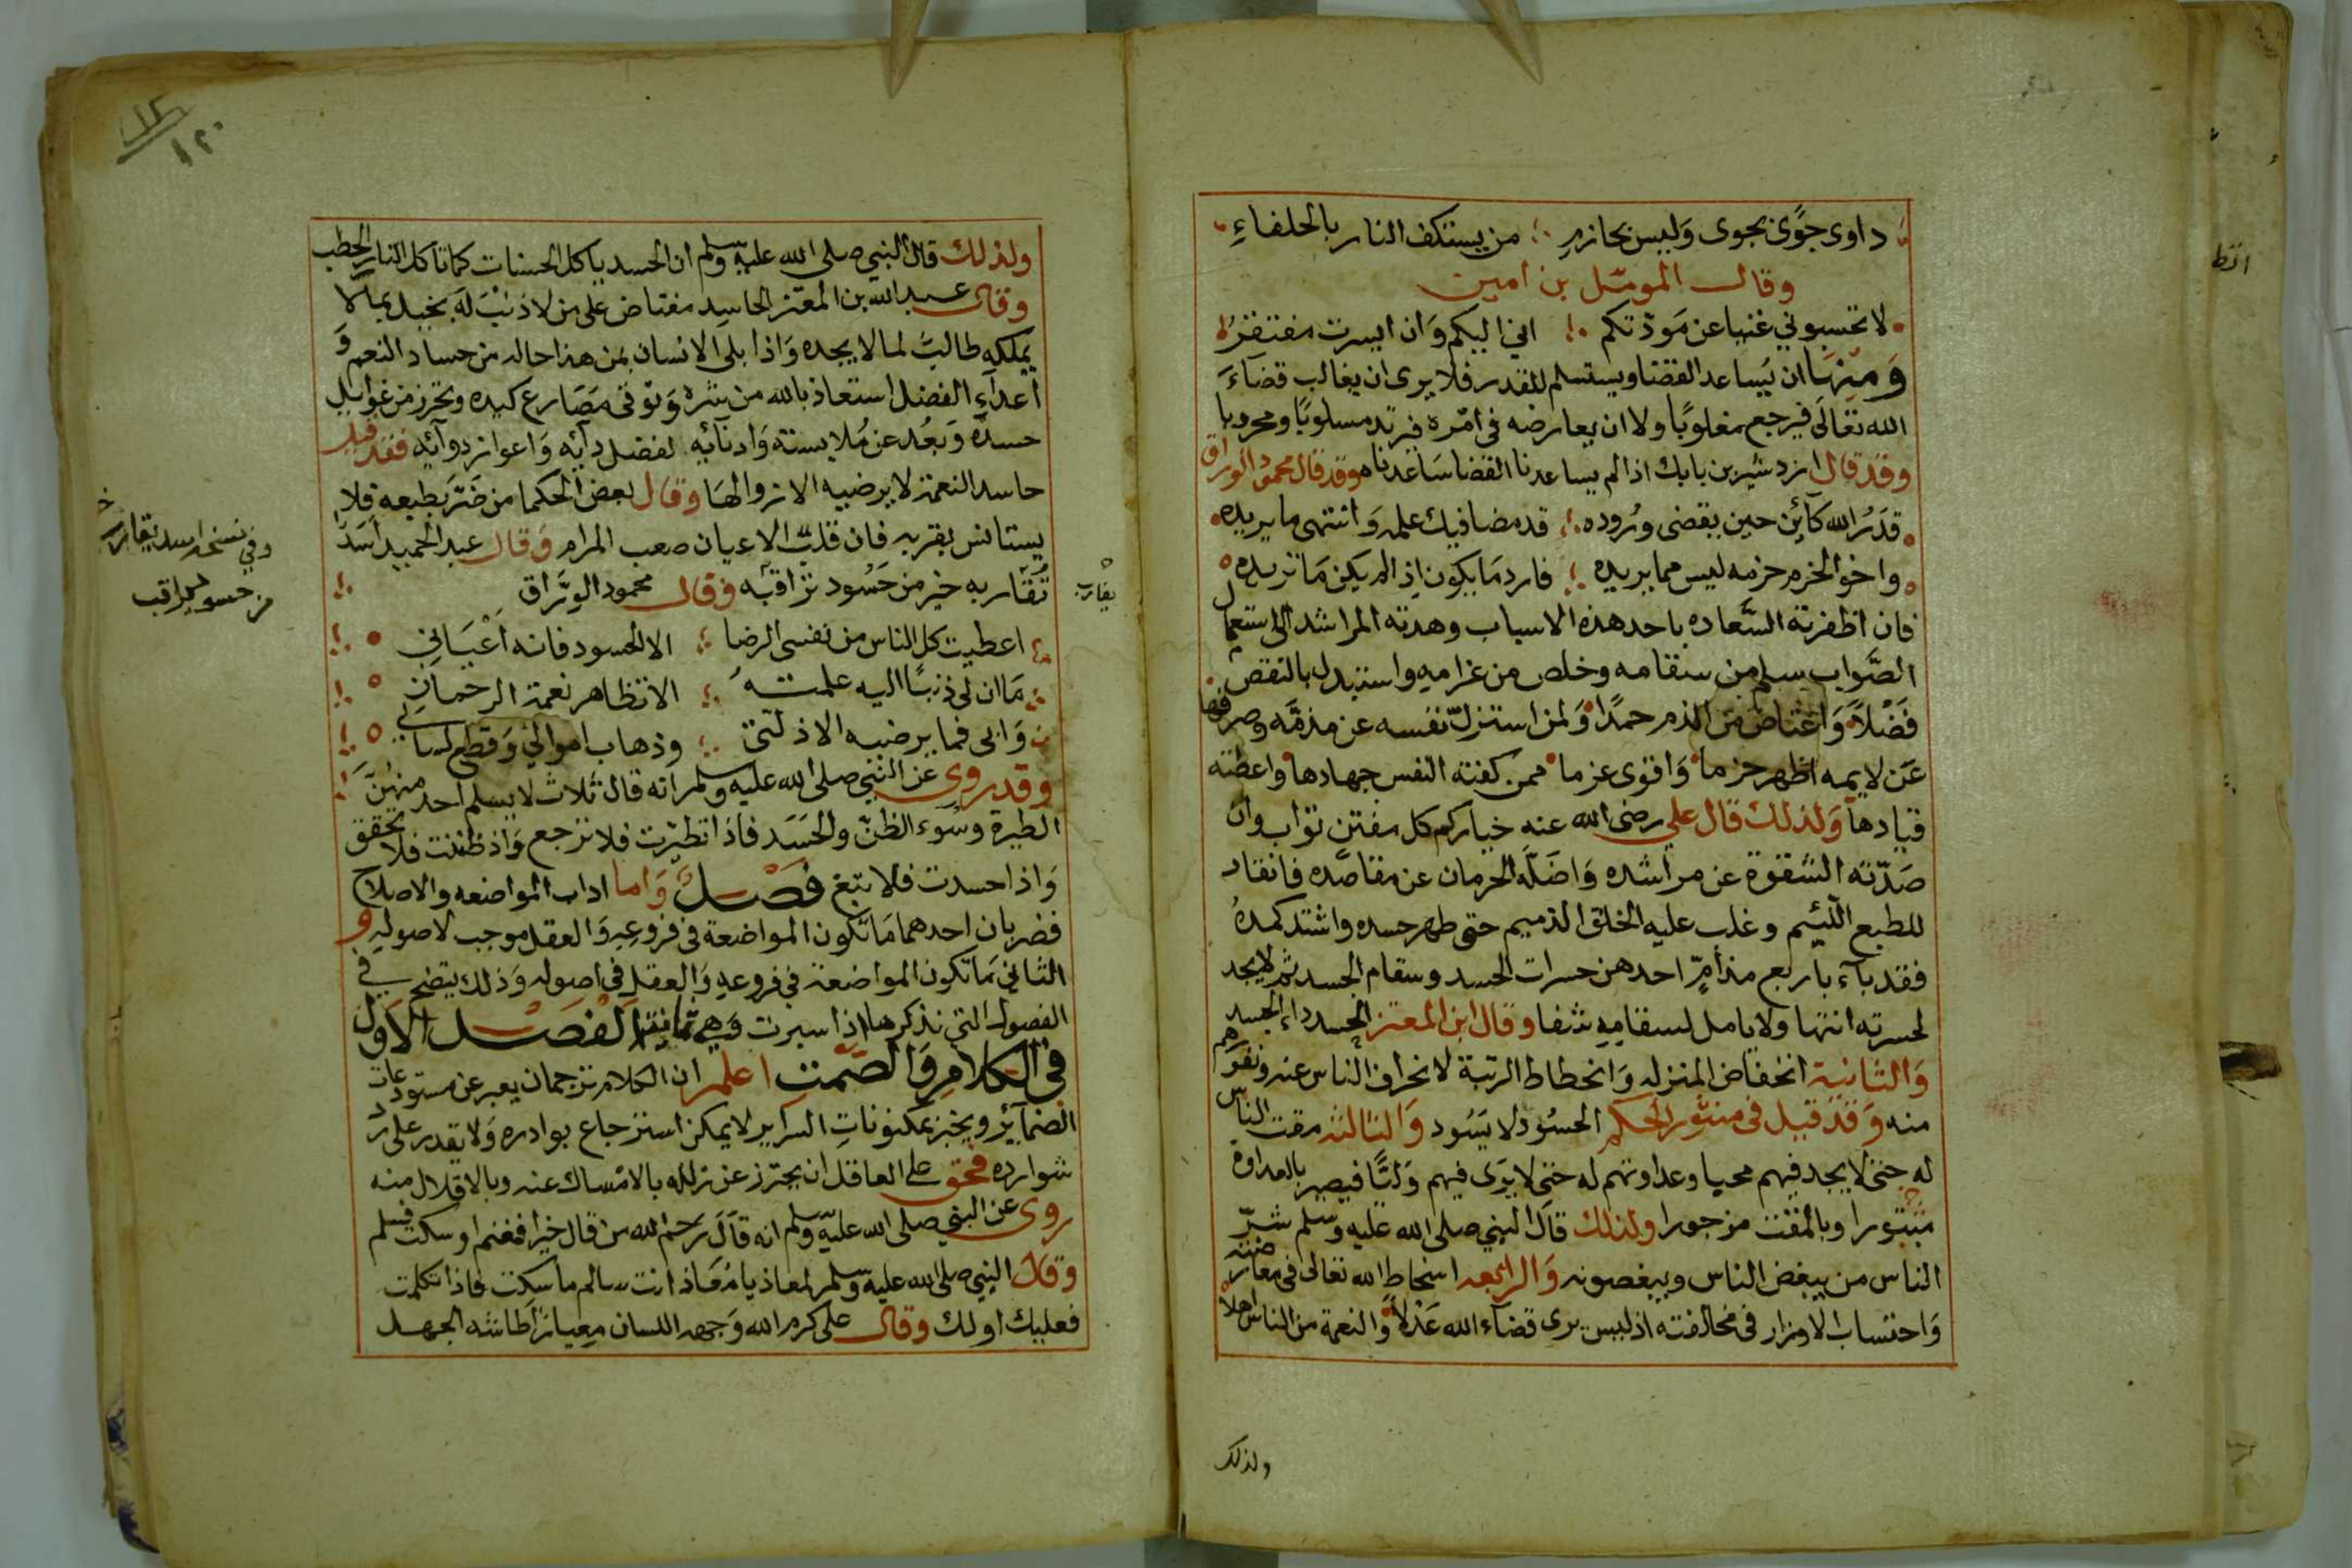 داوى جوًى بجوى وَليس بحازمٍ من يستكف النار بالحلفاءِ
وقال المومّل بن امين
لا تحسبوني غنيا عن مَودّتكم اني اليكم وَان ايسرت مفتقرُ
وَمِنْهَا ان يُساعد القضا ويستسلم للقدر فلا يرى ان يغالب قضاءَ
الله تعَالى فيرجع مغلوبًا ولا ان يعارضه في امْره فيرتد مسلوبًا ومحروبا
وقد قال ازدشير بن بابك اذا لم يساعدنا القضا سَاعدناه وقد قال محمود الوراق
قدَرُ الله كآئِن حين يقضى وُرُوده قد مضا فيك علمه وَانتهى ما يريده
واخو الحزم حزمه ليس مما يريده فارد مَا يكون اذ لم يكن مَا تريده
فان اظفرته السَّعاده باحد هذه الاسباب وهدته المراشد الى استعمال
الصَّواب سلم من سقامه وخلص من غرامهِ واستبدل بالنقص
فَضْلاً وَاعْتاض من الذم حمدًا وَلمن استنزل نفسه عن مذمّه وصرفها
عَن لايمه اظهر حزما وَاقوى عزما ممن كفته النفس جهادها واعطته
قيادها وَلذلك قال علي رضى الله عنه خياركم كل مفتن تواب وان
صَدّته الشقوة عن مراشده وَاضَلّه الحرمان عن مقاصده فانقاد
للطبع اللّئيم وغلب عليه الخلق الذميم حتى ظهر حسده واشتد كمدهُ
فقد بآء باربع مذامّ احدهن حسرات الحسد وسقام الجسد ثم لا يجد
لحسرته انتها ولا يامل لسقامهِ شفا وقال ابن المعتز الحسد داء الجسد
وَالثانية انخفاض المنزله وَانحطاط الرتبة لانحراف الناس عنه ونفورهم
منه وَقد قيل في منثور الحكم الحسُود لا يَسُود وَالثالثه مقت الناس
له حتى لا يجد فيهم محبا وعداوتهم له حتى لا يَرَى فيهم وَليًّا فيصير بالعداوة
مبثورا وبالمقت مزجورا ولذلك قالَ النبي صلى الله عليه وسلم شرّ
الناس من يبغض الناس ويبغضونه وَالرابعه اسخاط الله تعالى في معارضته
وَاحتساب الاوزار في مخالفته اذ ليس يرى قضآء الله عَدْلاً وَالنعمة من الناس اهلاً
ولذلك
ولذلك قال النبي صلى الله عليه وسلم ان الحسد ياكل الحسنات كما تاكل النار الحطب
وقال عبد الله بن المعتز الحاسِد مغتاض على من لا ذنبَ لَهَ بخيل بما لا
يملكه طالبٌ لما لا يجده وَاذا بلى الانسان بمن هذا حاله من حساد النعم وَ
اعدآء الفضل استعاذ بالله من شره وَتوقى مصَارع كيده وتحرز من غوايل
حسده وَبعُد عن مُلابسته وَادنآئه لفضل دآئه وَاعواز دوآئِه فقد قيل
حاسد النعمة لا يرضيه الا زوالهَا وَقال بعض الحكما من ضَرّ بطبعه فلا
يستانس بقربه فان قلبَ الاعيان صعب المرام وَقال عبد الحميد اَسدٌ
تُقَاربه خير من حَسُود تراقبه وقال محمود الورَّاق
اعطيت كل الناس من نفسى الرضا الا الحسود فانه اَعْيَانِي
مَا ان لى ذنبًا اليه علمتهُ الا تظاهر نعمة الرحمانِ
وَابى فما يرضيه الا ذلتى وذهاب اموالي وَقطع لساني
وقد روى عن النبي صلى الله عليه وسلم انه قال ثلاث لا يسلم احد منهُنّ
الطيرة وسُوء الظنّ والحَسَد فاذا تطيرت فلا ترجع وَاذ ظننت فلا تحقق
وَاذا حسدت فلا تبغ فَصْلٌ وَاما اداب المواضعه والاصلاح
فضربان احدهما مَا تكون المواضعة في فروعِهِ وَالعقل موجب لاصوله وَ
الثاني مَا تكون المواضعة في فروعهِ وَالعقل في اصوله وَذلك يتضح في
الفصول التي نذكرها اذا سبرت وَهي ثمانية الفَصْل الاوَّل
في الكلامِ وَالصَّمتِ اعلم ان الكلام ترجمان يعبر عن مستودعات
الضمآئر ويخبر بمكنونات السراير لا يمكن استرجاع بوادره وَلا يقدر على رد
شوارده فحق على العاقل ان يحترز عن زلله بالامْساك عنه وبالاقلال منه
روى عن النبي صلى الله عليه وسلم انه قالَ رحم الله من قال خيرا فغنم او سكت فسلم
وَقال النبي صلى الله عليه وسلم لمعاذ يا مُعاذ انت سالم ما سكت فاذا تكلمت
فعليك او لك وقال على كرم الله وَجهه اللسان معيارٌ اَطاشه الجهل
يقارب
وفي نسخه اسد تقاربه خ
من حسود تراقب
١٢
١٢٠